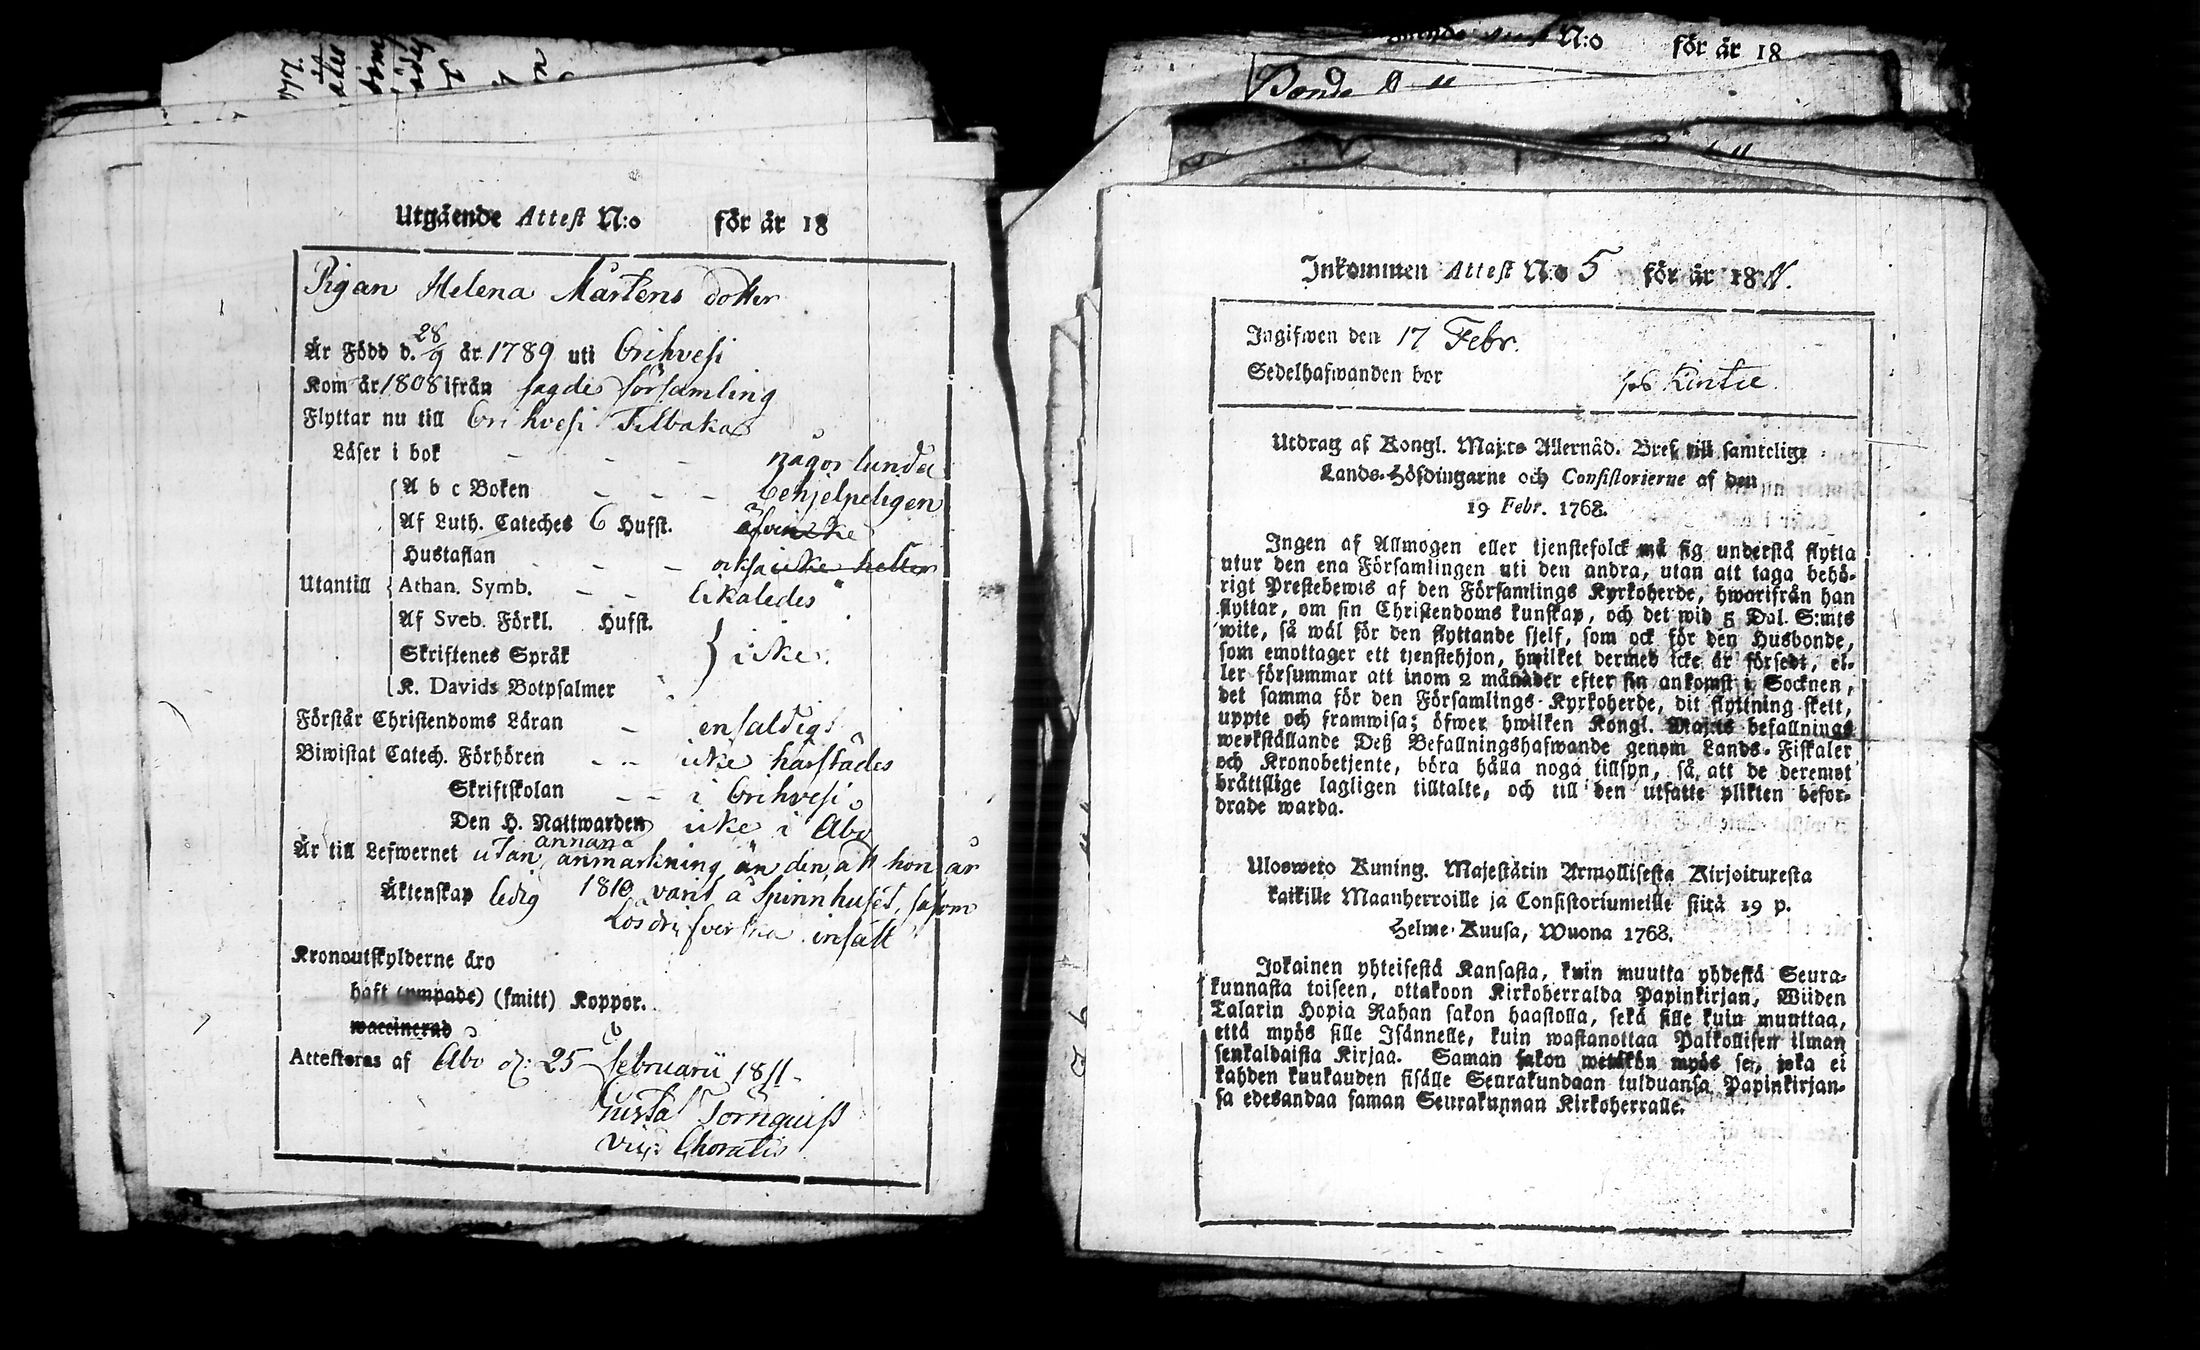 Utgående Attest N:o för år 18
Pigan Helena Mårtens dotter
Är Född d. 28/9 år 1789 uti Orihvesi
Kom år 1808 ifrån sagde församling
Flyttar nu till Orihvesi Tilbaka
Läser i bok - - - någorlunda
A b c Boken - - - behjelpeligen
Af Luth. Cateches 6 Hufst.
Hustaflan - - - också icke heller
Utantill Athan. Symb. - - likaledes
Af Sveb. Förkl. Hufst.
Skriftenes Språk } icke.
K. Davids Botpsalmer
Förstår Christendoms Läran - enfaldigt
Biwistat Catech. Förhören - - icke härstädes
Skriftskolan - - i Orihvesi
Den H. Nattwarden icke i Åbo
annan
Är till Lefwernet utan anmärkning än den, att hon år
Äktenskap ledig 1810 varit å Spinnhuset, såsom
Lösdrifverska insatt
Kronoutskylderne äro
haft (ympade) (smitt) Koppor.
waccinerad
Attesteras af Åbo d: 25 februarii 1811.
Gustaf Törnquist
Vic:
för år 18
N:o
Bonde
Inkommen Attest N:o 5 för år 1811.
Ingifwen den 17 Febr.
Sedelhafwanden bor
Utdrag af Kongl. Maj:ts Allernåd. Bref till samtelige
Lands-Höfdingarne och Consistorierne af den
19 Febr. 1768.
Ingen af Allmogen eller tjenstefolck må sig understå flytta
utur den ena Församlingen uti den andra, utan att taga behö-
rigt Prestebewis af den Församlings Kyrkoherde, hworifrån han
flyttar, om sin Christendoms kunskap, och det wid 5 Dal. S:mts
wite, så wäl för den flyttande sjelf, som ock för den Husbonde,
som emottager ett tjenstehjon, hwilket dermed icke är försedt, el-
ler försummar att inom 2 månader efter sin ankomst i Socknen,
det samma för den Församlings Kyrkoherde, dit flyttning skett,
uppte och framwisa; öfwer hwilken Kongl. Maj:ts befallnings
werkställande Deß Befallningshafwande genom Lands-Fiskaler
och Kronobetjente, böra hålla noga tillsyn, så, att de deremot
bråttslige lagligen tilltalte, och till den utsatte plikten befor-
drade warda.
Uloswero Kuning. Majestätin Armollisesta Kirjoituxesta
kaikille Maanherroille ja Consistoriumeille siitä 19 p.
Helme-Kuusa, Wuona 1768.
Jokainen yhteisestä Kansasta, kuin muutta yhdestä Seura-
kunnasta toiseen, ottakoon Kirkoherralda Papinkirjan, Wiiden
Talarin Hopia Rahan sakon haastolla, sekä sille kuin muuttaa,
että myös sille Isännelle, kuin wastanottaa Palkollisen ilman
senkaldaista Kirjaa. Saman sakon wetäkön myös se, joka ei
kahden kuukauden sisälle Seurakundaan tulduansa Papinkirjan-
sa edesandaa saman Seurakunnan Kirkoherralle.